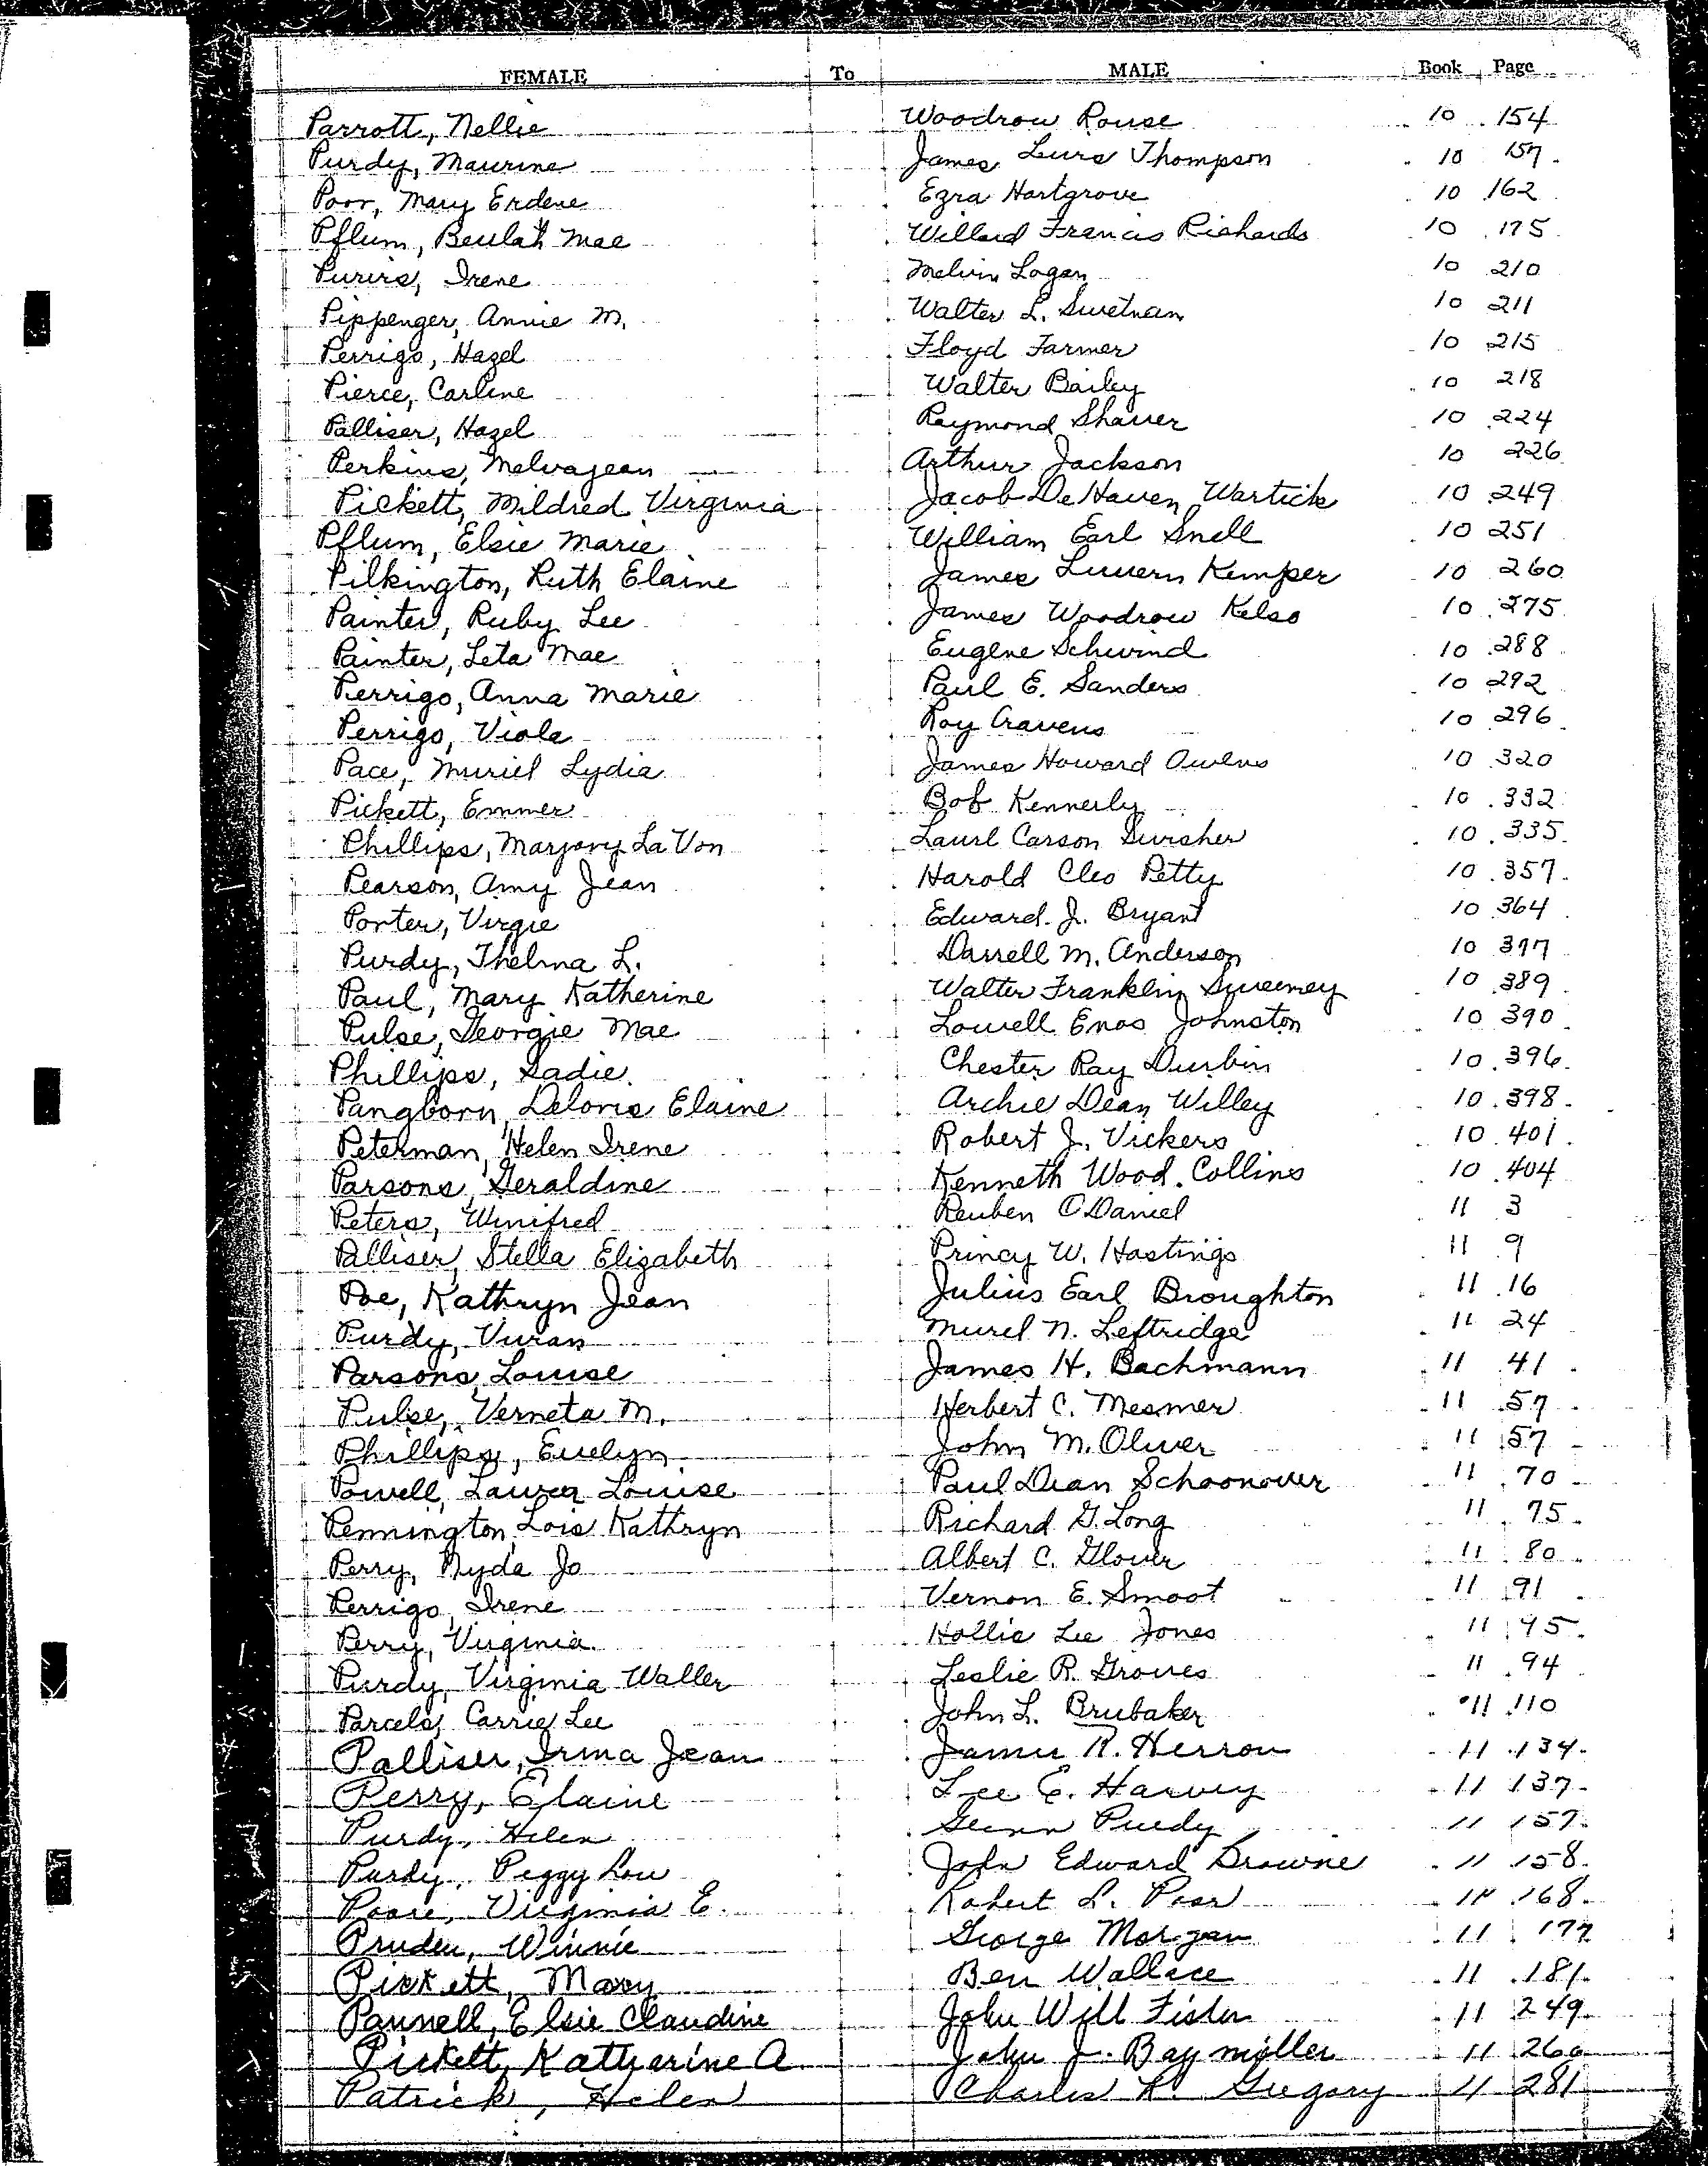 FEMALE To MALE Book Page
Parrott, Nellie Woodrow Rouse 10 154
Purdy, Maurine James Lurs Thompson 10 157
Poor, Mary Erdene Ezra Hartgrove 10 162
Pflum, Beulah Mae Willard Francis Richards 10 175
Purvis, Irene Melvin Logan 10 210
Pippenger, Annie M. Walter L. Swetnam 10 211
Perrigo, Hazel Floyd Farmer 10 215
Pierce, Carlene Walter Bailey 10 218
Palliser, Hazel Raymond Shaver 10 224
Perkins, Melvajean Arthur Jackson 10 226
Pickett, Mildred Virginia Jacob DeHaven Wartick 10 249
Pflum, Elsie Marie William Earl Snell 10 251
Pilkington, Ruth Elaine James Luvern Kemper 10 260
Painter, Ruby Lee James Woodrow Kelso 10 275
Painter, Leta Mae Eugene Schwind 10 288
Perrigo, Anna Marie Paul E. Sanders 10 292
Perrigo, Viola Roy Cravens 10 296
Pace, Muriel Lydia James Howard Owens 10 320
Pickett, Emmer Bob Kennerly 10 332
Phillips, Marjory LaVon Laurl Carson Swisher 10 335
Pearson, Amy Jean Harold Cleo Petty 10 357
Porter, Virgie Edward J. Bryant 10 364
Purdy, Thelma L. Darrell M. Anderson 10 377
Paul, Mary Katherine Walter Franklin Sweeney 10 389
Pulse, Georgie Mae Lowell Enos Johnston 10 390
Phillips, Sadie Chester Ray Durbin 10 396
Pangborn, Deloris Elaine Archie Dean Willey 10 398
Peterman, Helen Irene Robert J. Vickers 10 401
Parsons, Geraldine Kenneth Wood Collins 10 404
Peters, Winifred Reuben O'Daniel 11 3
Palliser, Stella Elizabeth Princy W. Hastings 11 9
Poe, Kathryn Jean Julius Earl Broughton 11 16
Purdy, Vuran Murel N. Leftridge 11 24
Parsons, Louise James H. Bachmann 11 41
Pulse, Verneta M. Herbert C. Mesmer 11 57
Phillips, Evelyn John M. Oliver 11 57
Powell, Laura Louise Paul Dean Schoonover 11 70
Pennington, Lois Kathryn Richard G. Long 11 75
Perry, Nyda Jo Albert C. Glover 11 80
Perrigo, Irene Vernon E. Smoot 11 91
Perry, Virginia Hollie Lee Jones 11 95
Purdy, Virginia Waller Leslie R. Groves 11 94
Parcels, Carrie Lee John L. Brubaker 11 110
Palliser, Irma Jean James R. Herron 11 134
Perry, Elaine Lee E. Harvey 11 137
Purdy, Helen Glenn Purdy 11 157
Purdy, Peggy Lou John Edward Browne 11 158
Poore, Virginia E. Robert L. Poor 11 168
Pruden, Winnie George Morgan 11 177
Pickett, Mary Ben Wallace 11 181
Pannell, Elsie Claudine John Will Fister 11 249
Pickett, Katharine A John J. Baymiller 11 260
Patrick, Helen Charles R. Gregory 11 281